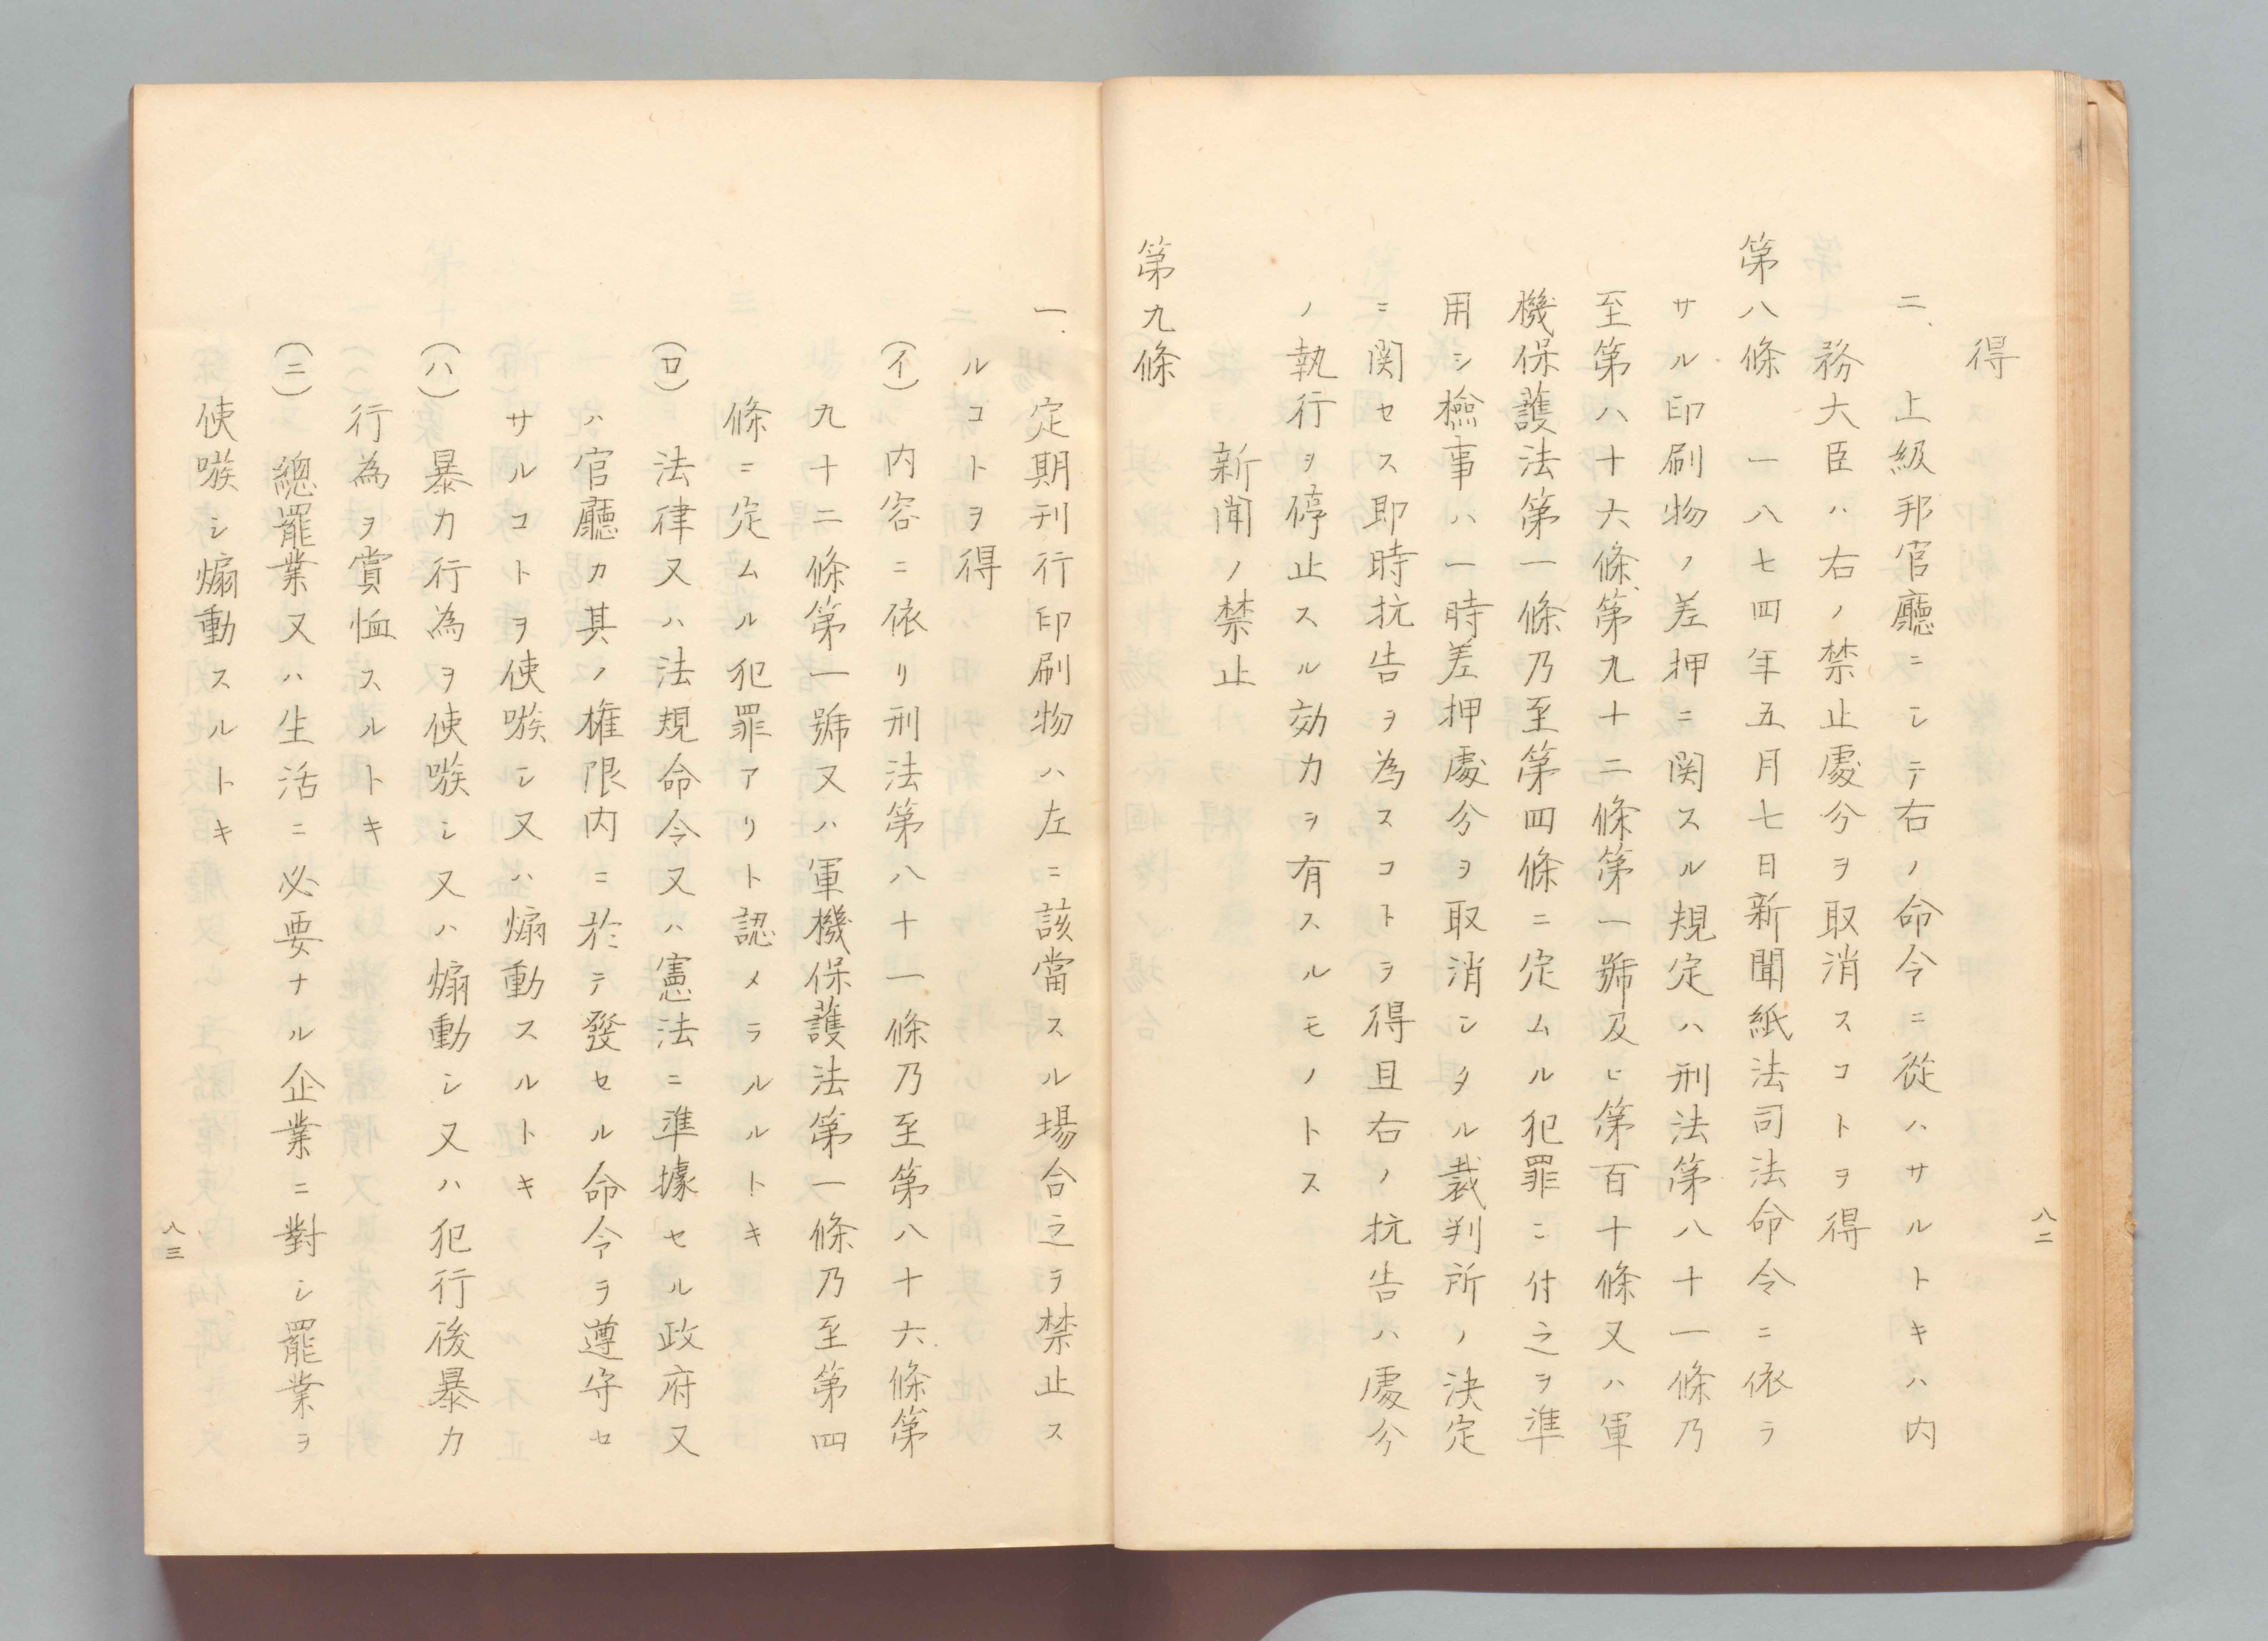 得
二、上級邦官廳ニシテ右ノ命令ニ從ハサルトキハ内
務大臣ハ右ノ禁止處分ヲ取消スコトヲ得
第八條　一八七四年五月七日新聞紙法司法命令ニ依ラ
サル印刷物ノ差押ニ関スル規定ハ刑法第八十一條乃
至第八十六條、第九十二條第一號及ヒ第百十條又ハ軍
機保護法第一條乃至第四條ニ定ムル犯罪ニ付之ヲ準
用シ檢事ハ一時差押處分ヲ取消シタル裁判所ノ決定
ニ関セス即時抗告ヲ為スコトヲ得且右ノ抗告ハ處分
ノ執行ヲ停止スル効力ヲ有スルモノトス
新聞ノ禁止
第九條
八二
一、定期刊行印刷物ハ左ニ該當スル場合之ヲ禁止ス
ルコトヲ得
(イ)　内容ニ依リ刑法第八十一條乃至第八十六條第
九十二條第一號又ハ軍機保護法第一條乃至第四
條ニ定ムル犯罪アリト認メラルルトキ
(ロ)　法律又ハ法規命令又ハ憲法ニ準據セル政府又
ハ官廳カ其ノ権限内ニ於テ發セル命令ヲ遵守セ
サルコトヲ使嗾シ又ハ煽動スルトキ
(ハ)　暴力行為ヲ使嗾シ又ハ煽動シ又ハ犯行後暴力
行為ヲ賞恤スルトキ
(ニ)　總罷業又ハ生活ニ必要ナル企業ニ對シ罷業ヲ
使嗾シ煽動スルトキ
八三